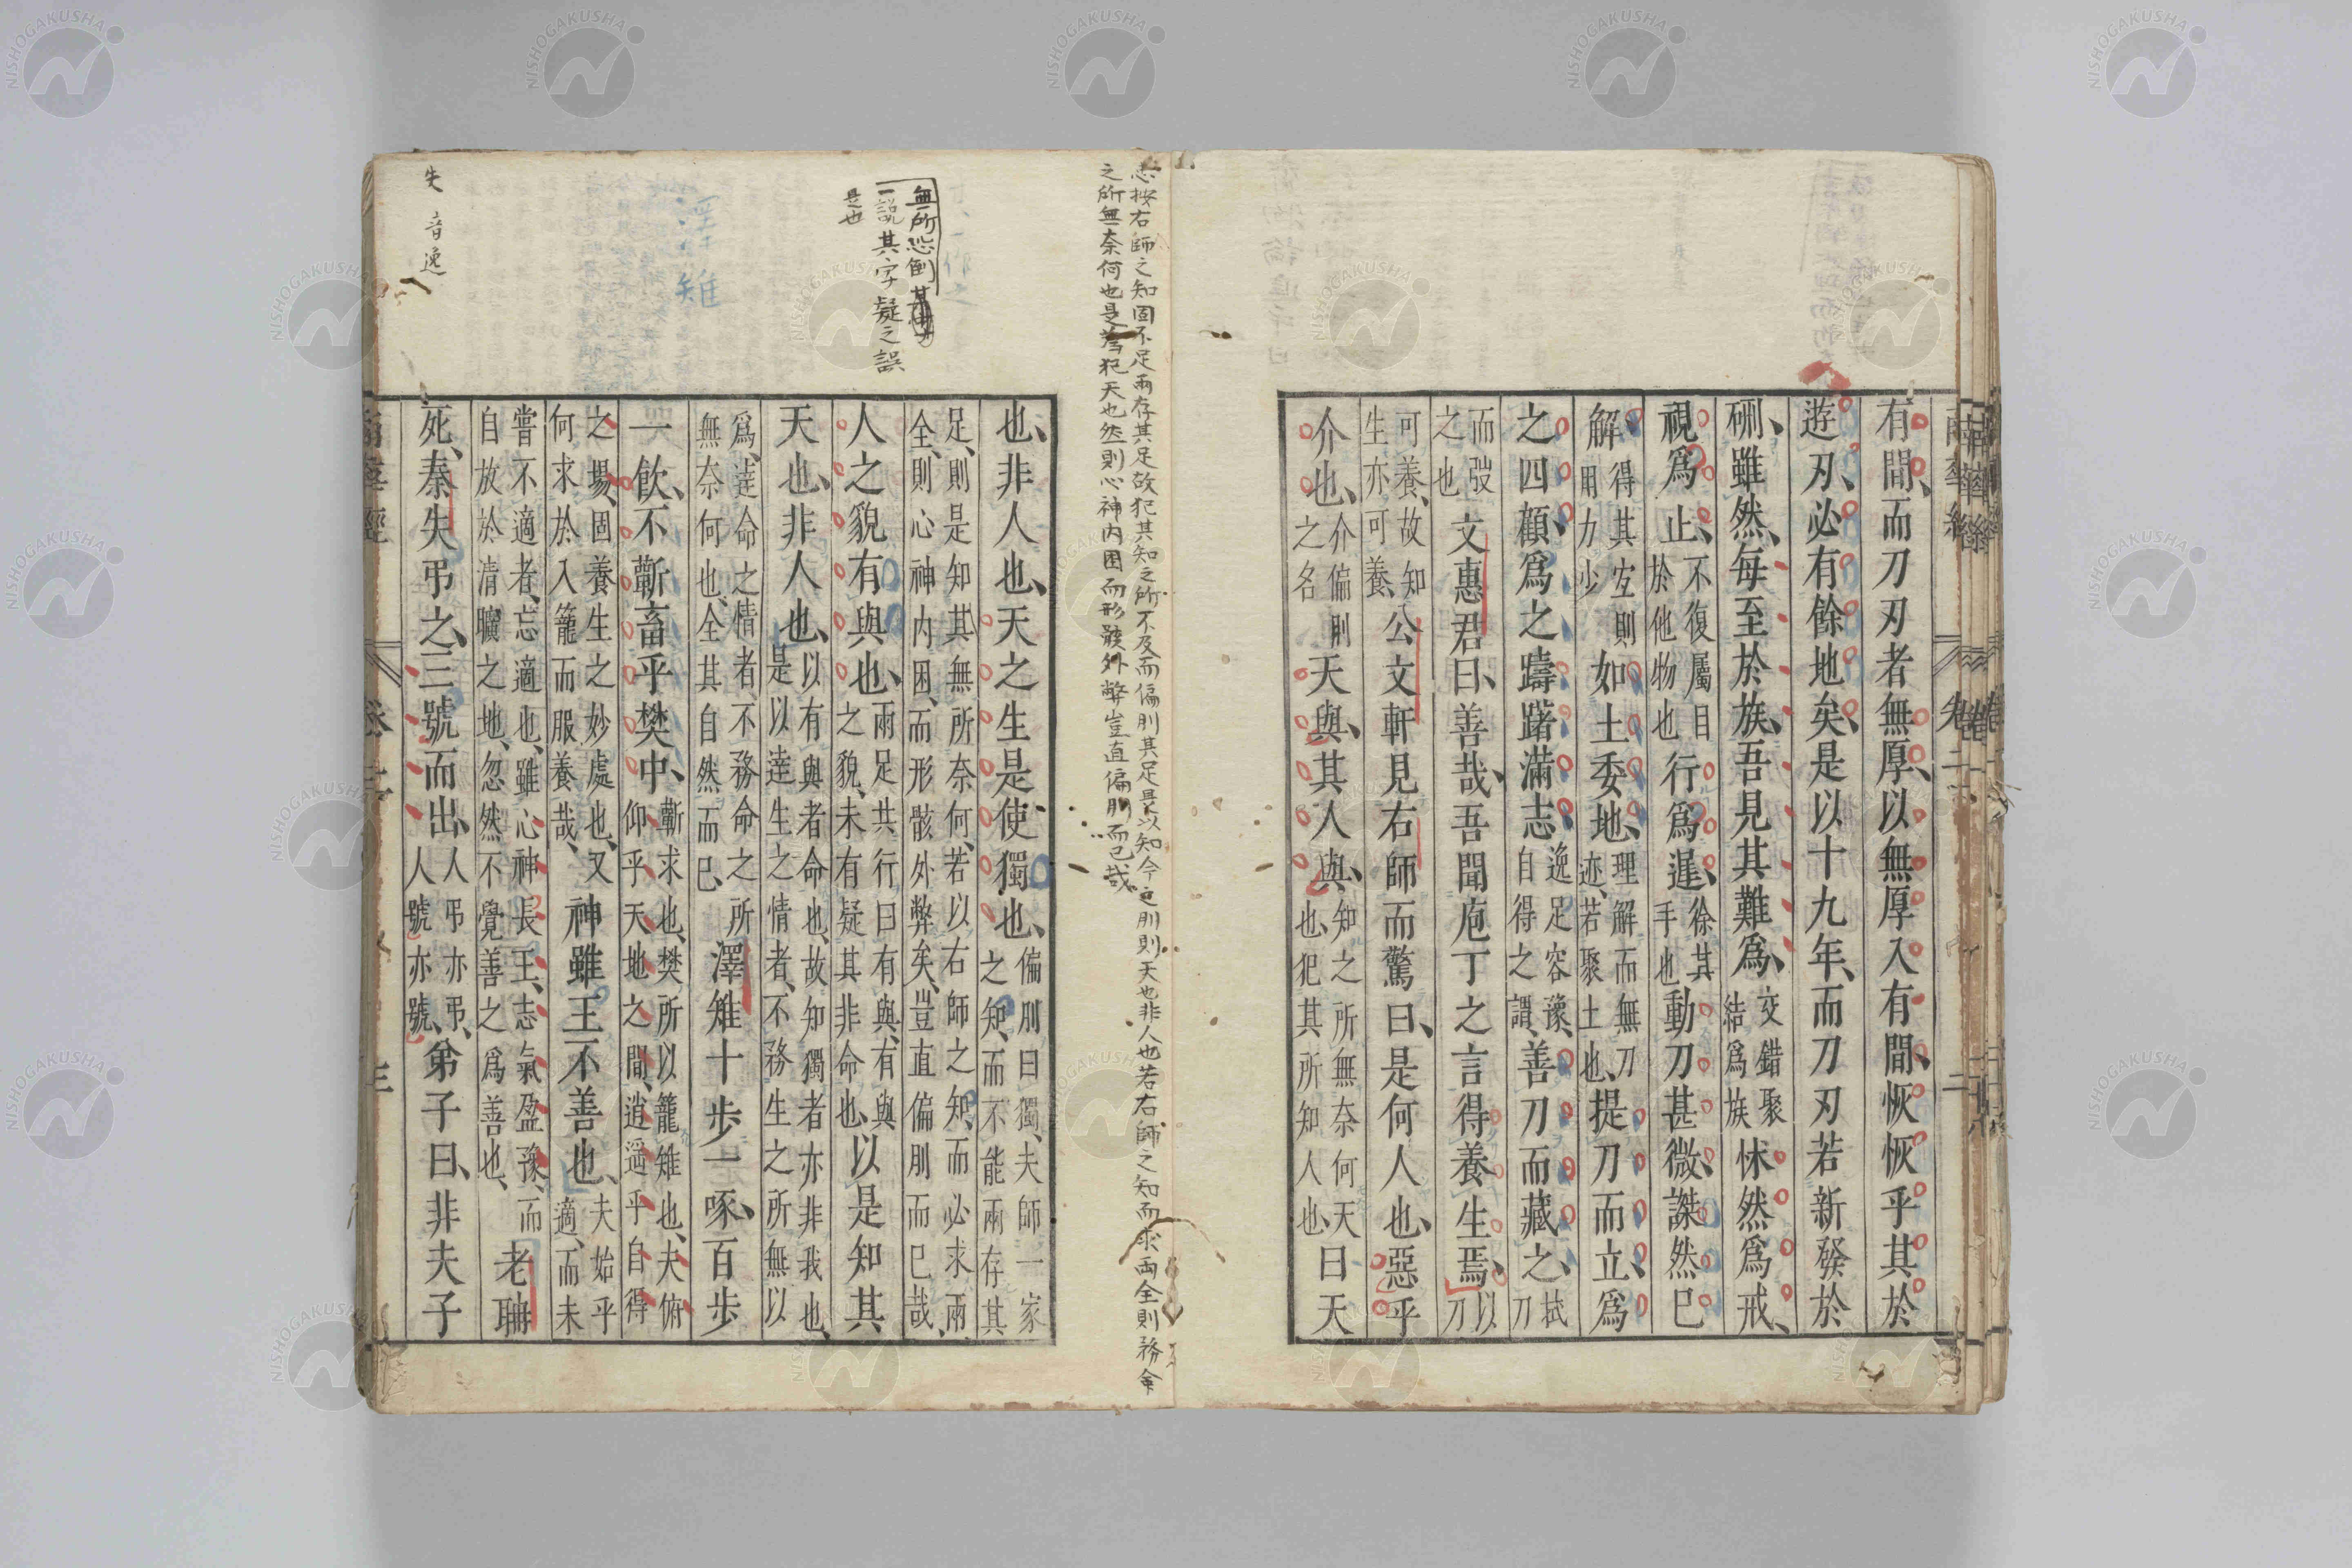 有間、而刀刃者無厚、以無厚入有間、恢恢乎其於
遊刃、必有餘地矣、是以十九年、而刀刃若新發於
硎、雖然、每至於族、吾見其難爲、交錯聚結爲族怵然爲戒、
視爲止、不復屬目於他物也行爲遲、徐其手也動刀甚微、謋然已
解、得其宜則用力少如土委地、理解而無刀迹、若聚土也、提刀而立、爲
之四顧、爲之躊躇滿志、逸足容豫、自得之謂、善刀而藏之、拭刀
而弢之也文惠君曰、善哉、吾聞庖丁之言得養生焉、以刀
可養、故知生亦可養、公文軒見右師而驚曰、是何人也、惡乎
介也、介偏刖之名天與、其人與、知之所無奈何天也、犯其所知人也、曰天
也、非人也、天之生是使獨也、偏刖曰獨、夫師一家之知、而不能兩存其
足、則是知其無所奈何、若以右師之知、而必求兩全、則心神內困、而形骸外弊矣、豈直偏刖而已哉、
人之貌有與也、兩足共行曰有與、有與之貌、未有疑其非命也、以是知其
天也、非人也、以有與者命也、故知獨者亦非我也、是以達生之情者、不務生之所無以
爲、達命之情者、不務命之所無奈何也、全其自然而已、澤雉十步一啄、百步
一飮、不蘄畜乎樊中、蘄求也、樊所以籠雉也、夫俯仰乎天地之間、逍遥乎自得
之場、固養生之妙處也、又何求於入籠而服養哉、神雖王不善也、夫始乎適、而未
嘗不適者、忘適也、雖心神長王、志氣盈豫、而自放於清曠之地、忽然不覺善之爲善也、老聃
死、秦失弔之、三號而出、人弔亦弔、人號亦號、弟子曰、非夫子
南華經
卷二
二
按右師之知固不足兩存其足故犯其知之所不及而偏刖其足是以知今之刖則天也非人也若右師之知而求兩全則務命
之所無奈何也是爲犯天也然則心神内困而形骸外弊豈直偏刖而已哉
無所恐倒
一說其字疑之誤
是也
澤雉
失 音逸
南華經
卷二
三
NISHOGAKUSHA